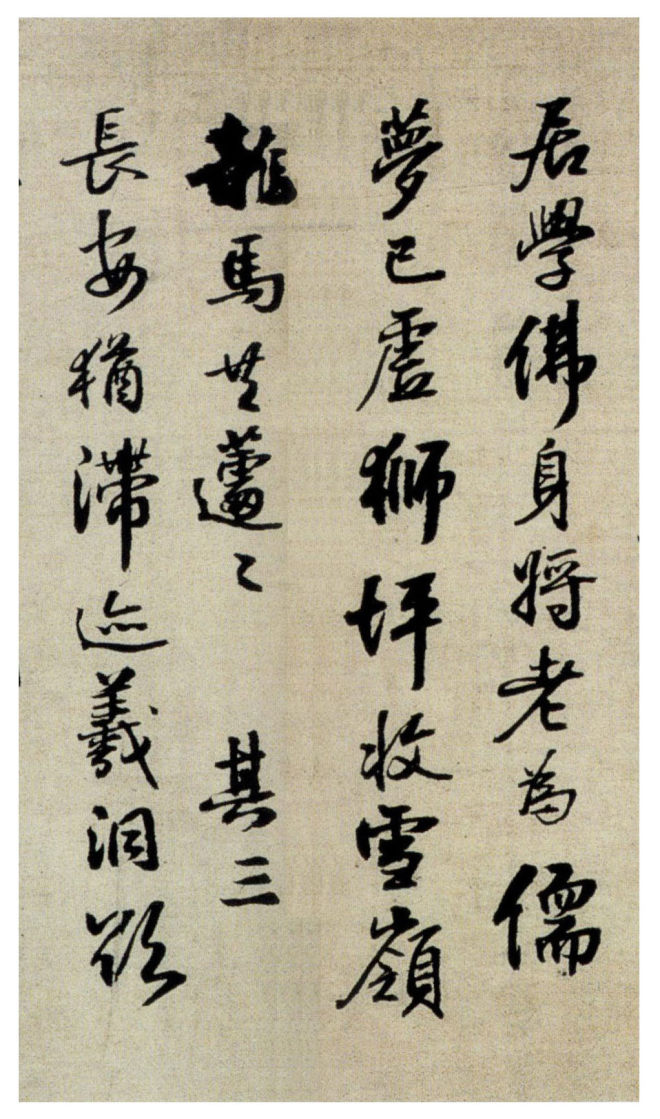 居學佛身將老為儒
夢已虛獅坪收雪嶺
龍馬共蘧〻 其三
長安猶滯迹羲洞